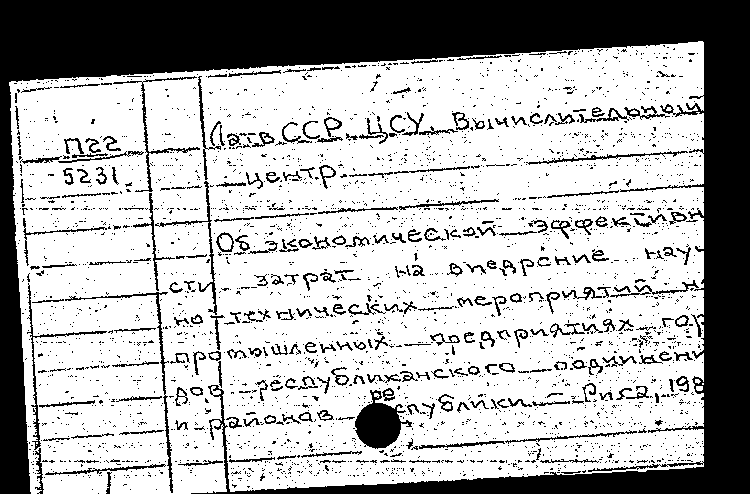 П22
5231.
Латв ССР. ЦСУ. Вычислительный
центр.
Об экономической эффективн
сти затрат на внедрение науч
но-технических мероприятий на
промышленных предприятиях гор
дов республиканского подчинени
и районав республики. – Рига, 198